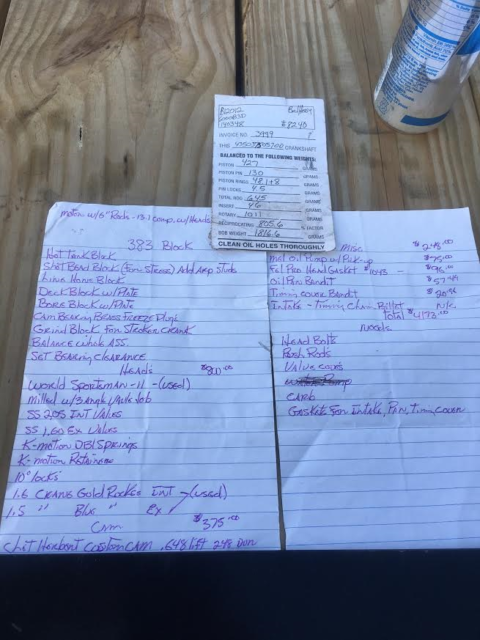 INVOICE NO. 3999
THIS CRANKSHAFT
BALANCED TO THE FOLLOWING WEIGHTS:
PISTON 427 GRAMS
PISTON PIN 130 GRAMS
PISTON RINGS GRAMS
PIN LOCKS 4.5 GRAMS
TOTAL ROD 645 GRAMS
INSERT 46 GRAMS
ROTARY GRAMS
RECIPROCATING % FACTOR
BOB WEIGHT 1816.6 GRAMS
CLEAN OIL HOLES THOROUGHLY
motor w/6" Rods - 13.1 comp. w/Heads
383 Block
Hot Tank Block
Shot Bead Block (For Stress) Add Arp Studs
Line Hone Block
Deck Block w/Plate
Bore Block w/Plate
Cam Bearing Brass Freeze Plugs
Grind Block For Stroker Crank
Balance whole Ass.
Set Bearing Clearance
Heads
World Sportsman - II - (used)
Milled w/3 Angle Valve Job
SS 2.05 INT Valves
SS 1.60 Ex Valves
K-motion Dbl Springs
K-motion Retainers
10° locks
1.6 Crane Gold Rocker INT - (used)
1.5 " Blue " Ex
Cam $375.00
Chet Herbert Custom Cam .648 Lift
Misc
Mel Oil Pump w/Pickup $75.00
Fel Pro Head Gasket #1043 -
Oil Pan
Timing Cover
Intake - Timing Chain Billet N/C
Total
Needs
Head Bolts
Push Rods
Valve Covers
Carb
Gaskets For Intake, Pan, Timing Cover